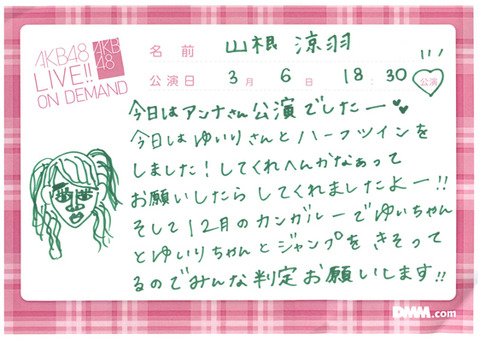 AKB48
LIVE!!
ON DEMAND
AKB
48
名前 山根 涼羽
公演日 3月6日 18:30 公演
今日はアンナさん公演でしたー
今日はゆいりさんとハーフツインを
しました！してくれへんかなぁって
お願いしたらしてくれましたよー!!
そして12月のカンガルーでゆいちゃん
とゆいりちゃんとジャンプをきそって
るのでみんな判定お願いします!!
DMM.com